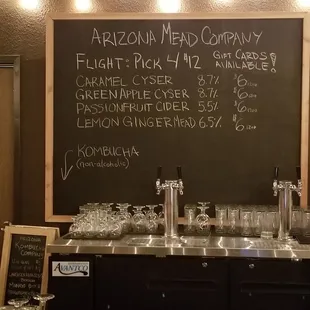 ARIZONA MEAD COMPANY
FLIGHT: PICK 4 $12
GIFT CARDS AVAILABLE!
CARAMEL CYSER 8.7% $6
GREEN APPLE CYSER 8.7% $6
PASSIONFRUIT CIDER 5.5% $6
LEMON GINGER MEAD 6.5% $6
KOMBUCHA
(non-alcoholic)
ARIZONA
KOMBUCHA
COMPANY
AVANTCO